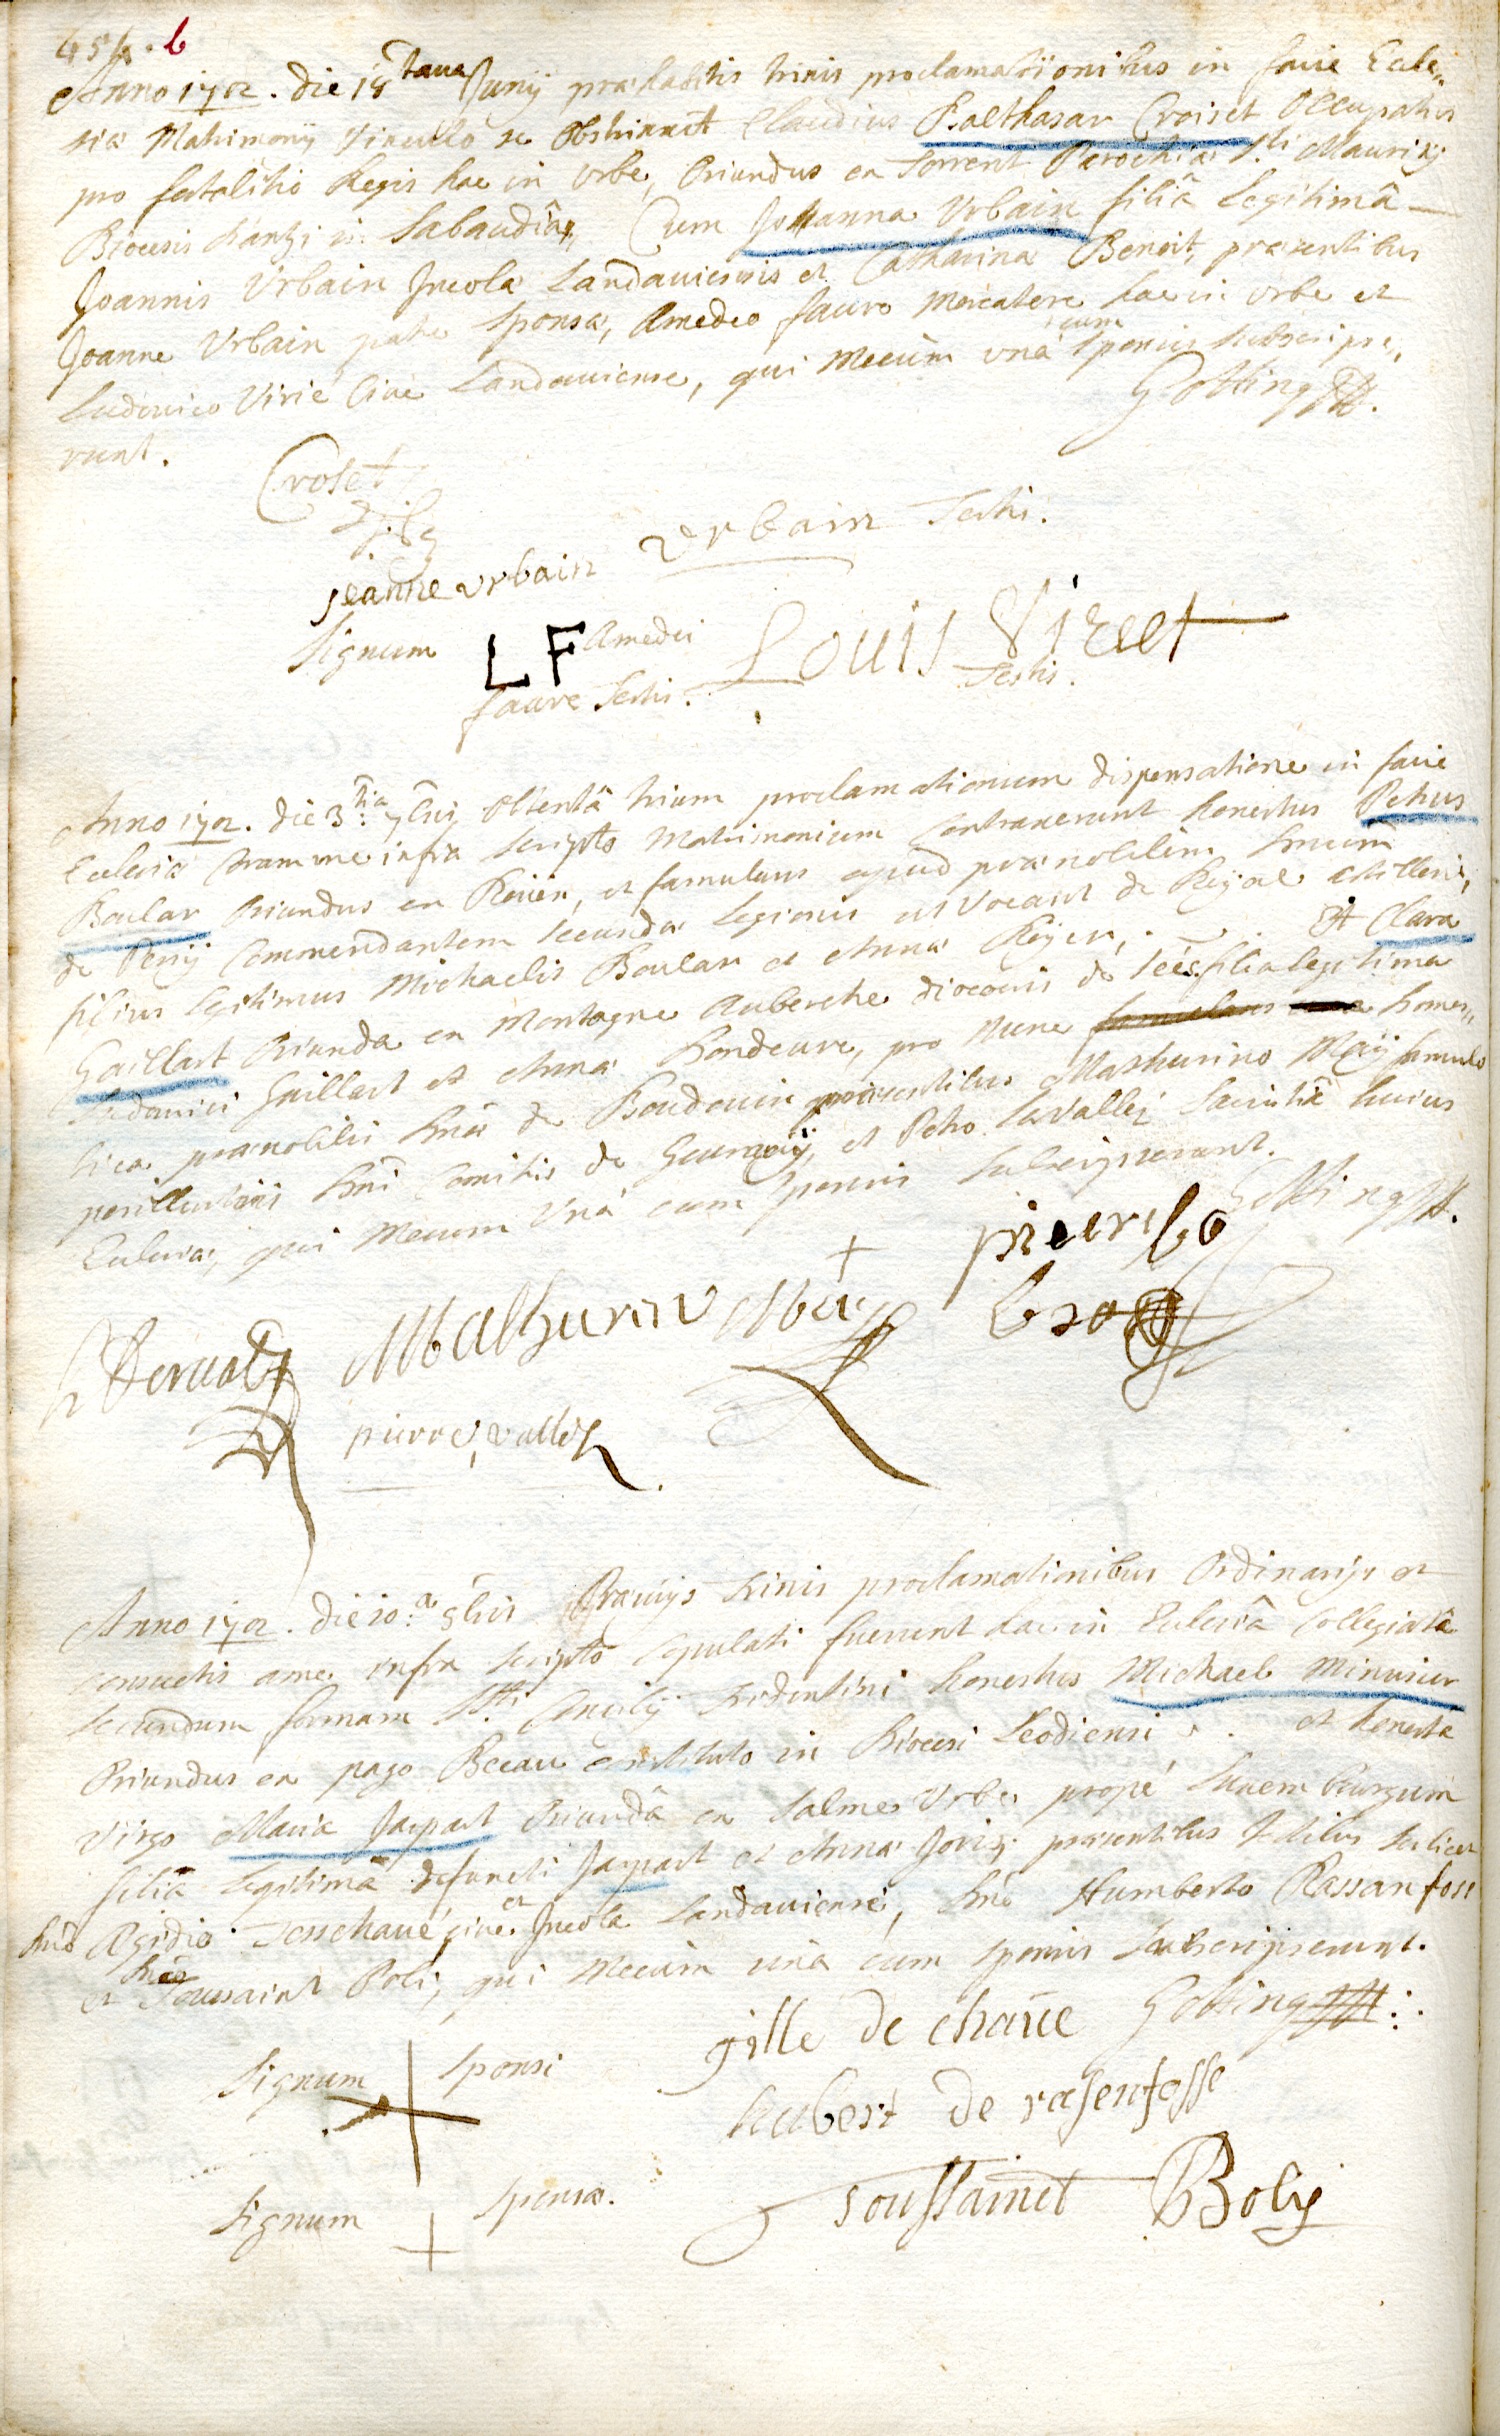 454. b
Anno 1702. die 18 tava Junij præhabitis trinis proclamationibus in facie Eccle„
siæ Matrimonij vinculo se obstrinxit Claudius Balthasar Croiset occupatus
pro fortalitio Regis hac in Urbe, oriundus ex Torrent Parochiæ S.ti Mauritij
Diocesis in Sabaudiâ, Cum Johanna Urbain filiâ legitimâ —
Joannis Urbain Incolæ Landaviensis et Catharina Benoit, præsentibus
Joanne Urbain patre sponsæ, Amedeo faure Mercatore hac in urbe et
Ludovico Virié Cive Landaviense, qui mecum unà cum sponsis subscripse„
runt.
Gotting
Croset
Urbain Testis.
jeanne urbain
Signum L F Amedei
faure Testis.
Louis Viret
Testis.
Anno 1702. die 3tia 7bris obtentâ trium proclamationum dispensatione in facie
Ecclesiæ coram me infra scripto Matrimonium contraxerunt honestus Petrus
Boular oriundus ex Rouen, et famulans apud prænobilem Dnum
de Commendantem secundæ Legionis ut vocant de Royal Artillerie,
filius legitimus Michaelis Boular et Annæ Et Clara
Gaillart oriunda ex Montagne Auberche diocesis de Sées filia legitima
Ludovici Gaillart et Annæ pro nunc famulans hones„
tica prænobilis Dnæ de Boudouin præsentibus Mathurino Meij famulo
perillustris Dni Comitis de et Petro La Vallei Sacristâ huius
Ecclesiæ, qui mecum unà cum sponsis subscripserunt.
Gotting
+
Mathurin Meij
pierre valleij
Anno 1702. die 10.a 8bris Præviis trinis proclamationibus ordinarijs et
consuetis a me infra scripto copulati fuerunt hac in Ecclesiâ Collegiatâ
secundum formam S.ti Concilij Tridentini honestus Michael Minusier
oriundus ex pago Beeau constituto in Diocesi Leodiensi . . et honesta
Virgo Maria Jaspart oriundâ ex Salme Urbe propé Luxemburgum
filiâ legitimâ defuncti Jaspart et Annæ Joris, præsentibus Testibus scilicet
Dno Ægidio Desschaué, cive et Incola Landaviense, Dno Humberto Rassanfoss
et Dno Toussaint Poli, qui mecum unà cum sponsis subscripserunt.
gille de chaüe Gotting
Signum sponsi
hubert de rasenfosse
Signum sponsæ.
toussainct Bolij